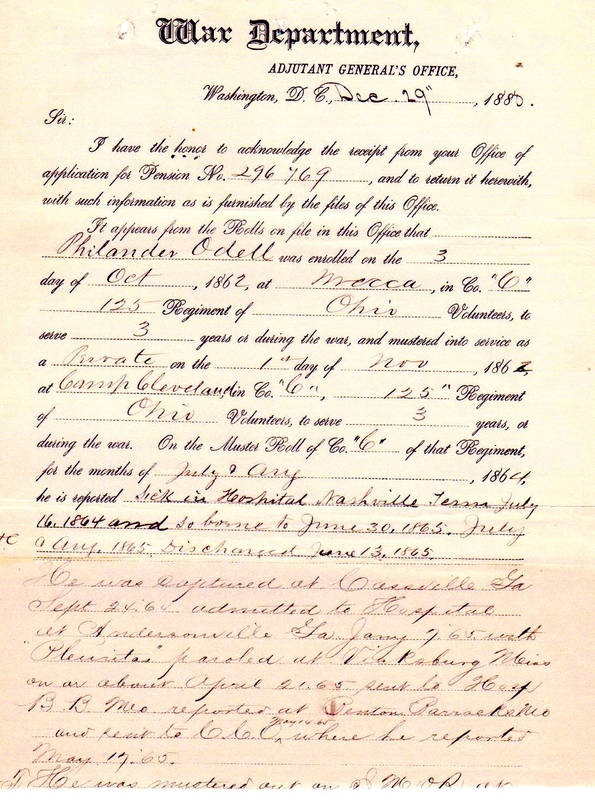 War Department,
ADJUTANT GENERAL'S OFFICE,
Washington, D. C., Dec. 29", 188
Sir:
I have the honor to acknowledge the receipt from your Office of
application for Pension No. 296769, and to return it herewith,
with such information as is furnished by the files of this Office.
It appears from the Rolls on file in this Office that
Philander Odell was enrolled on the 3
day of Oct, 1862, at Mecca, in Co. "C"
125 Regiment of Ohio Volunteers, to
serve 3 years or during the war, and mustered into service as
a Private on the 1st day of Nov, 1862,
at Camp Cleveland, in Co. "C", 125" Regiment
of Ohio Volunteers, to serve 3 years, or
during the war. On the Muster Roll of Co. "C" of that Regiment,
for the months of July & Aug, 1864,
he is reported Sick in Hospital Nashville Tenn July
16. 1864 and so borne to June 30, 1865. July
& Aug. 1865, Discharged June 13, 1865.
He was captured at Cassville Ga
Sept 24. 64 admitted to Hospital
at Andersonville Ga Jany 7. 65 with
"Pleuritas" paroled at Vicksburg Miss
on or about April 21. 65 sent to Hosp
B B Mo reported at Benton Barracks Mo
and sent to C.C.O. where he reported
May 17. 65.
He was mustered out on at